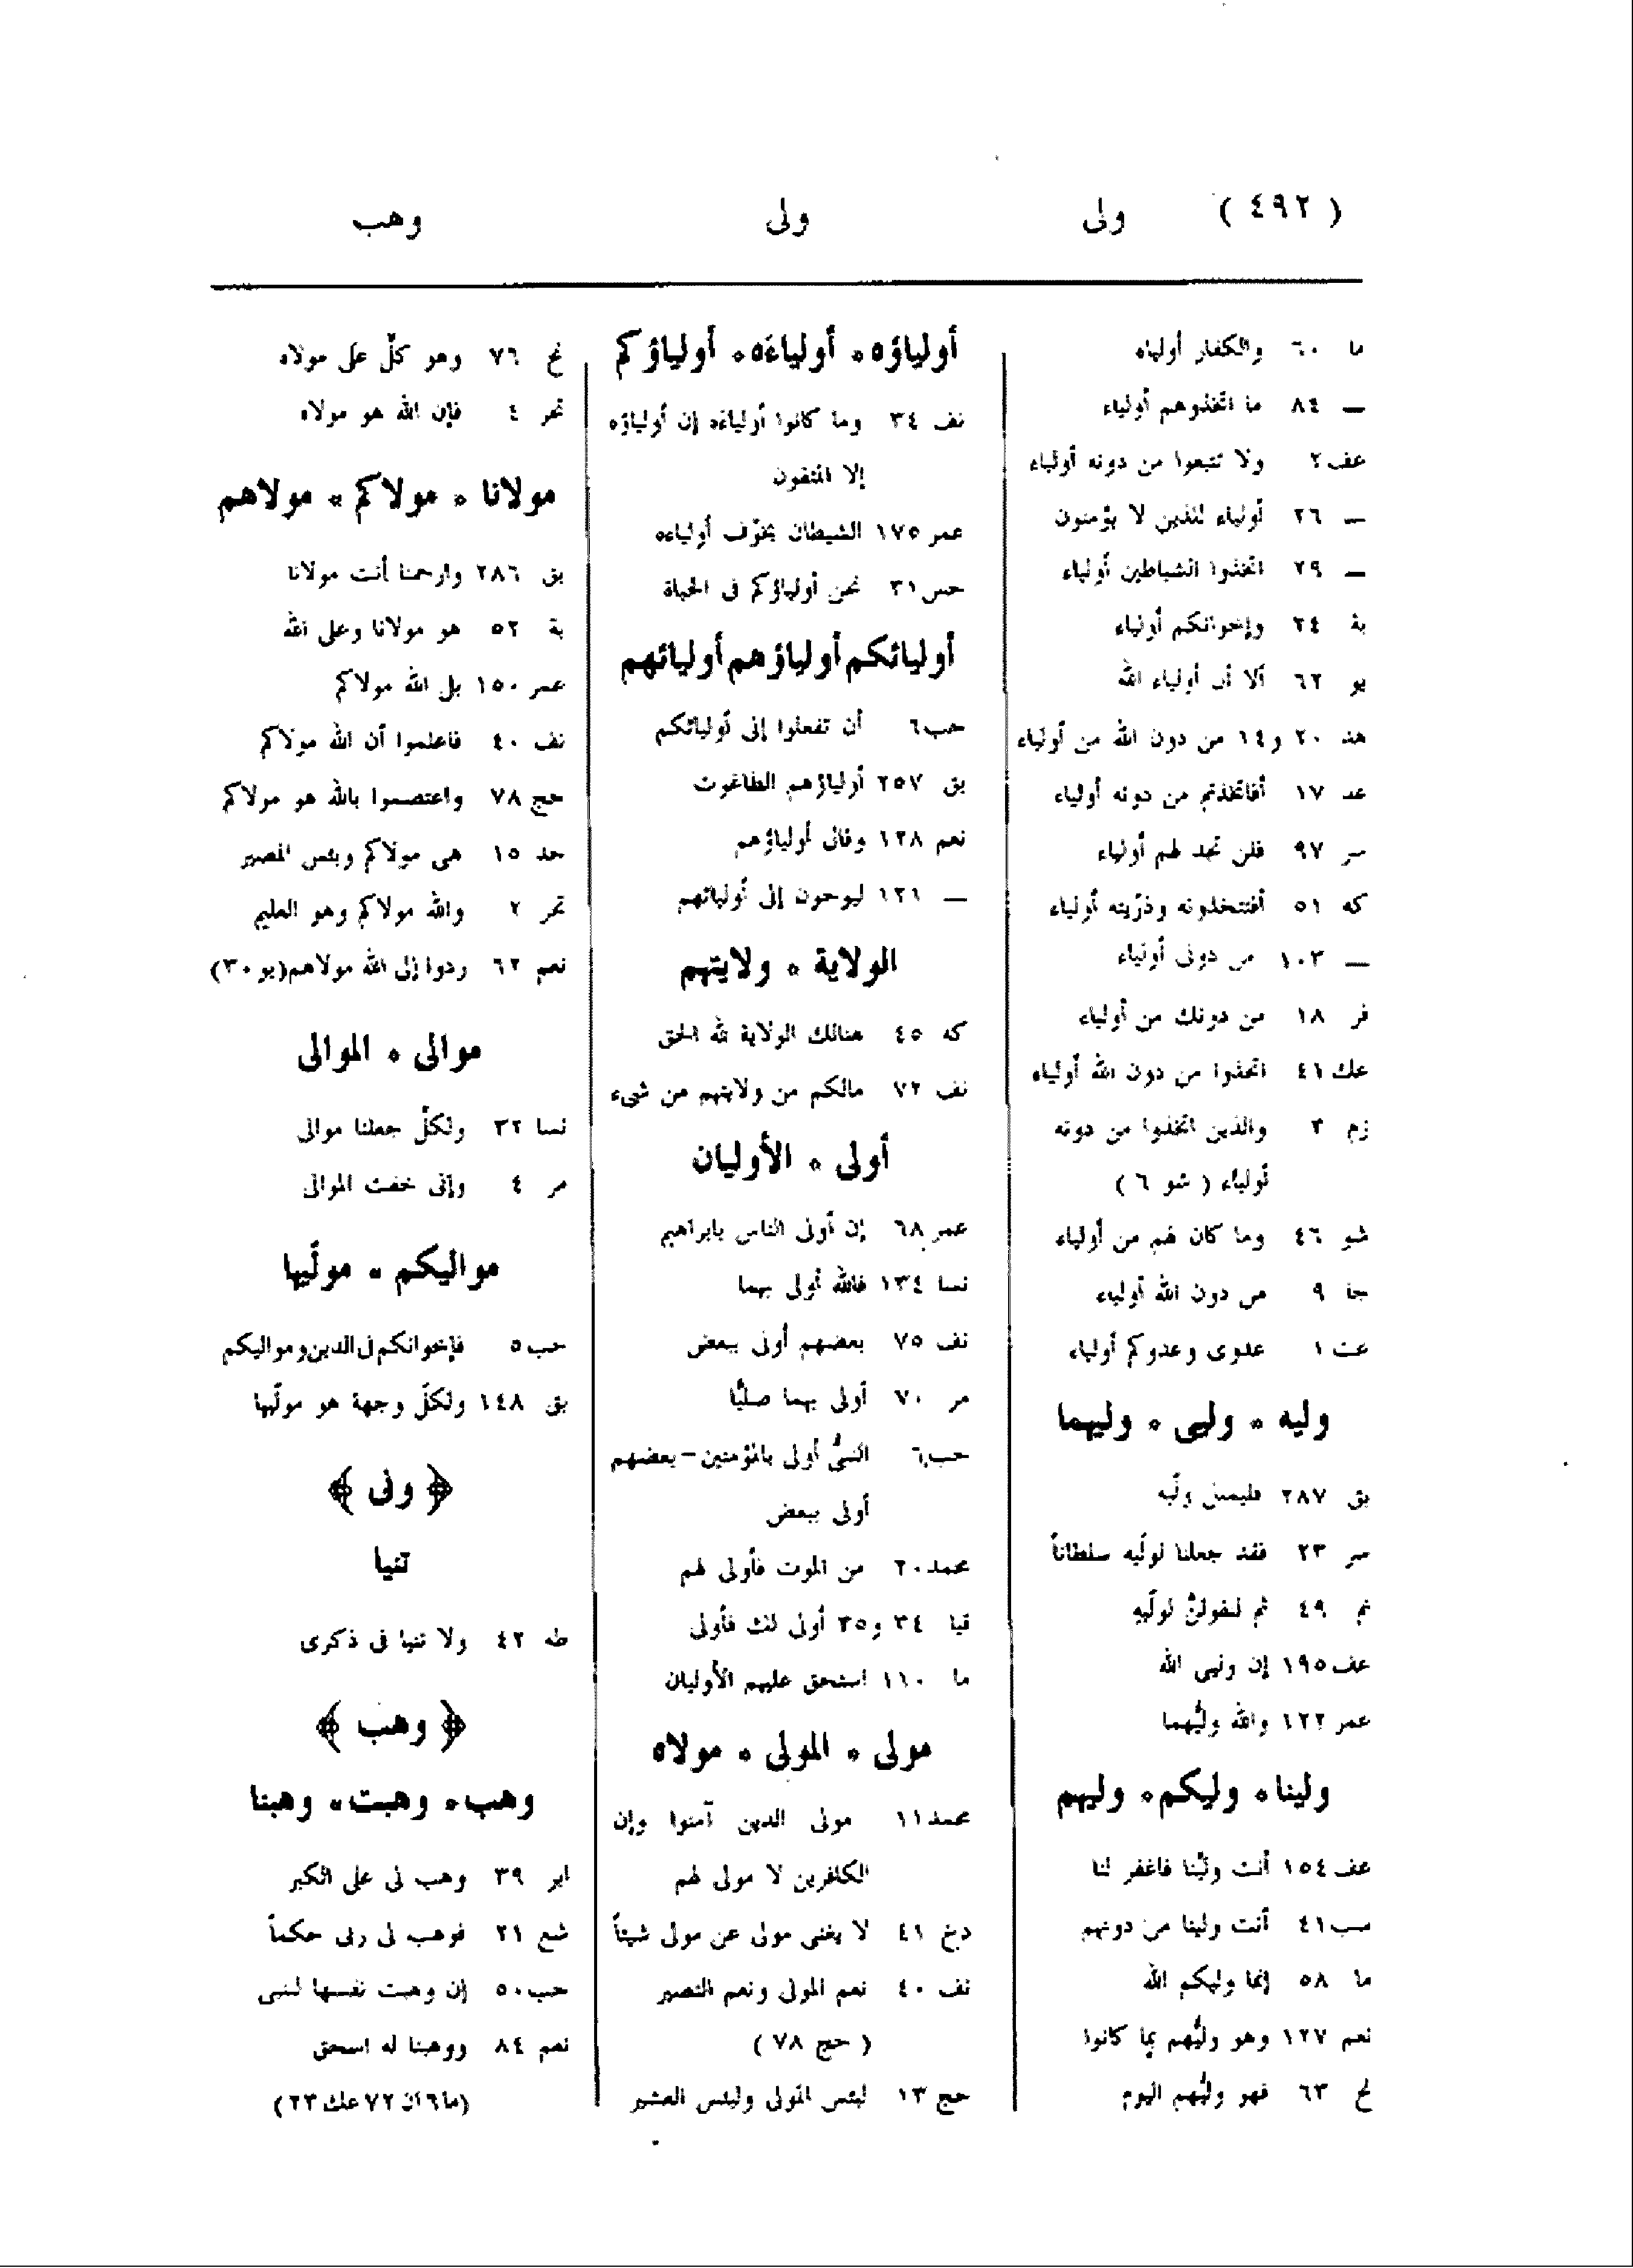 ( ٤٩٢ ) ولى ولى وهب
ما ٦٠ والكفار أولياء
ــ ٨٤ ما اتخذوهم أولياء
عف ٢ ولا تتبعوا من دونه أولياء
ــ ٢٦ أولياء للذين لا يؤمنون
ــ ٢٩ اتخذوا الشياطين أولياء
بة ٢٤ وإخوانكم أولياء
يو ٦٢ ألا أن أولياء الله
هد ٢٠ و١٤ من دون الله من أولياء
عد ١٧ أفاتخذتم من دونه أولياء
سر ٩٧ فلن تجد لهم أولياء
كه ٥١ أفتتخذونه وذرّيته أولياء
ــ ١٠٣ من دونى أولياء
فر ١٨ من دونك من أولياء
عك ٤١ اتخذوا من دون الله أولياء
زم ٣ والذين اتخذوا من دونه
أولياء ( شو ٦ )
شو ٤٦ وما كان لهم من أولياء
جا ٩ من دون الله أولياء
عت ١ عدوى وعدوكم أولياء
وليه * وليى * وليهما
بق ٢٨٧ فليملل وليّه
سر ٢٣ فقد جعلنا لوليّه سلطاناً
نم ٤٩ ثم لنقولنّ لوليّهِ
عف ١٩٥ إن وليى الله
عمر ١٢٢ والله وليُّهما
ولينا * وليكم * وليهم
عف ١٥٤ أنت وليُّنا فاغفر لنا
سب ٤١ أنت ولينا من دونهم
ما ٥٨ إنما وليكم الله
نعم ١٢٧ وهو وليُّهم بما كانوا
نح ٦٣ فهو وليُّهم اليوم
أولياؤه * أولياءَه * أولياؤكم
نف ٣٤ وما كانوا أولياءَه إن أولياؤه
إلا المتقون
عمر ١٧٥ الشيطان يخوّف أولياءه
حس ٣١ نحن أولياؤكم فى الحياة
أوليائكم أولياؤهم أوليائهم
حب ٦ أن تفعلوا إلى أوليائكم
بق ٢٥٧ أولياؤهم الطاغوت
نعم ١٢٨ وقال أولياؤهم
ــ ١٢١ ليوحون إلى أوليائهم
الولاية * ولايتهم
كه ٤٥ هنالك الولاية لله الحق
نف ٧٢ مالكم من ولايتهم من شىء
أولى * الأوليان
عمر ٦٨ إن أولى الناس بابراهيم
نسا ١٣٤ فالله أولى بهما
نف ٧٥ بعضهم أولى ببعض
مر ٧٠ أولى بهما صليًّا
حب ٦ النبىُّ أولى بالمؤمنين - بعضهم
أولى ببعض
محمد ٢٠ من الموت فأولى لهم
قيا ٣٤ و٣٥ أولى لك فأولى
ما ١١٠ استحق عليهم الأوليان
مولى * المولى * مولاه
محمد ١١ مولى الذين آمنوا وإن
الكافرين لا مولى لهم
دخ ٤١ لا يغنى مولى عن مولى شيئاً
نف ٤٠ نعم المولى ونعم النصير
( حج ٧٨ )
حج ١٣ لبئس المولى ولبئس العشير
نح ٧٦ وهو كلّ على مولاه
تحر ٤ فإن الله هو مولاه
مولانا * مولاكم * مولاهم
بق ٢٨٦ وارحمنا أنت مولانا
بة ٥٢ هو مولانا وعلى الله
عمر ١٥٠ بل الله مولاكم
نف ٤٠ فاعلموا أن الله مولاكم
حج ٧٨ واعتصموا بالله هو مولاكم
حد ١٥ هى مولاكم وبئس المصير
تحر ٢ والله مولاكم وهو العليم
نعم ٦٢ ردوا إلى الله مولاهم (يو ٣٠)
موالى * الموالى
نسا ٣٢ ولكلّ جعلنا موالى
مر ٤ وإنى خفت الموالى
مواليكم * مولّيها
حب ٥ فإخوانكم فى الدين ومواليكم
بق ١٤٨ ولكلّ وجهة هو مولّيها
﴿ ونى ﴾
تنيا
طه ٤٢ ولا تنيا فى ذكرى
﴿ وهب ﴾
وهب * وهبت * وهبنا
ابر ٣٩ وهب لى على الكبر
شع ٢١ فوهب لى ربى حكماً
حب ٥٠ إن وهبت نفسها للنبى
نعم ٨٤ ووهبنا له اسحق